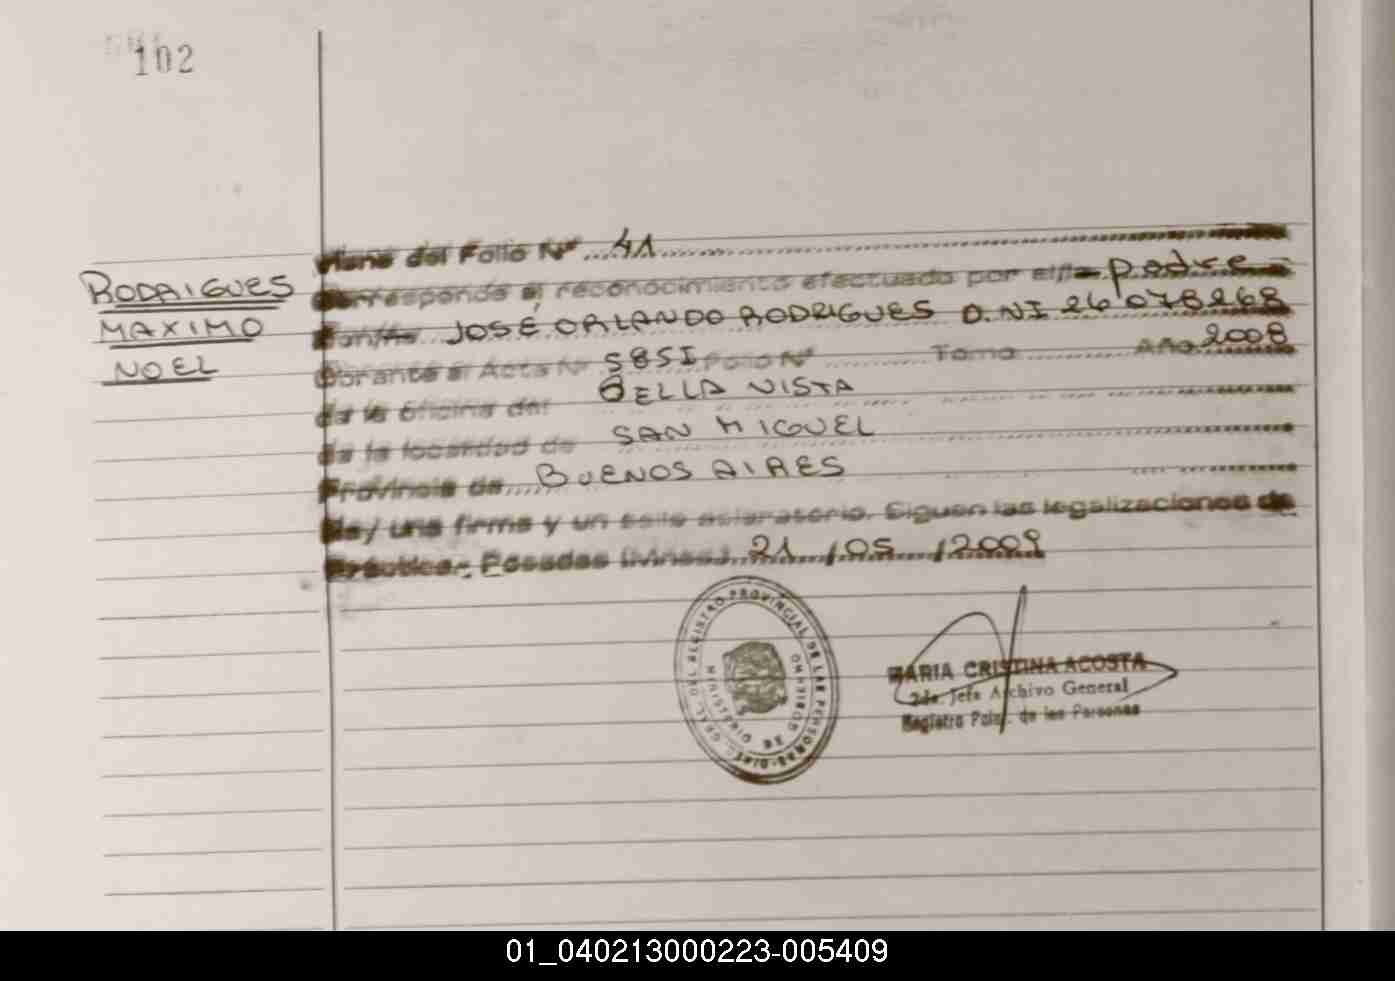 102
RODRIGUES
MAXIMO
NOEL
Viene del Folio Nº 41
Corresponde al reconocimiento efectuado por el/la padre
Don/ña JOSÉ ORLANDO RODRIGUES D.NI 26 078268
Obrante al Acta Nº 585I Folio Nº Tomo Año 2008
de la oficina del BELLA VISTA
de la localidad de SAN MIGUEL
Provincia de BUENOS AIRES
Hay una firma y un sello aclaratorio. Siguen las legalizaciones de
Práctica.- Posadas (Mnes.) 21 /05 /2009
REGISTRO PROVINCIAL DE LAS PERSONAS - DIREC. GRAL. DEL
MINISTERIO DE GOBIERNO
MARIA CRISTINA ACOSTA
2da. Jefa Archivo General
Registro Pcial. de las Personas
01_040213000223-005409